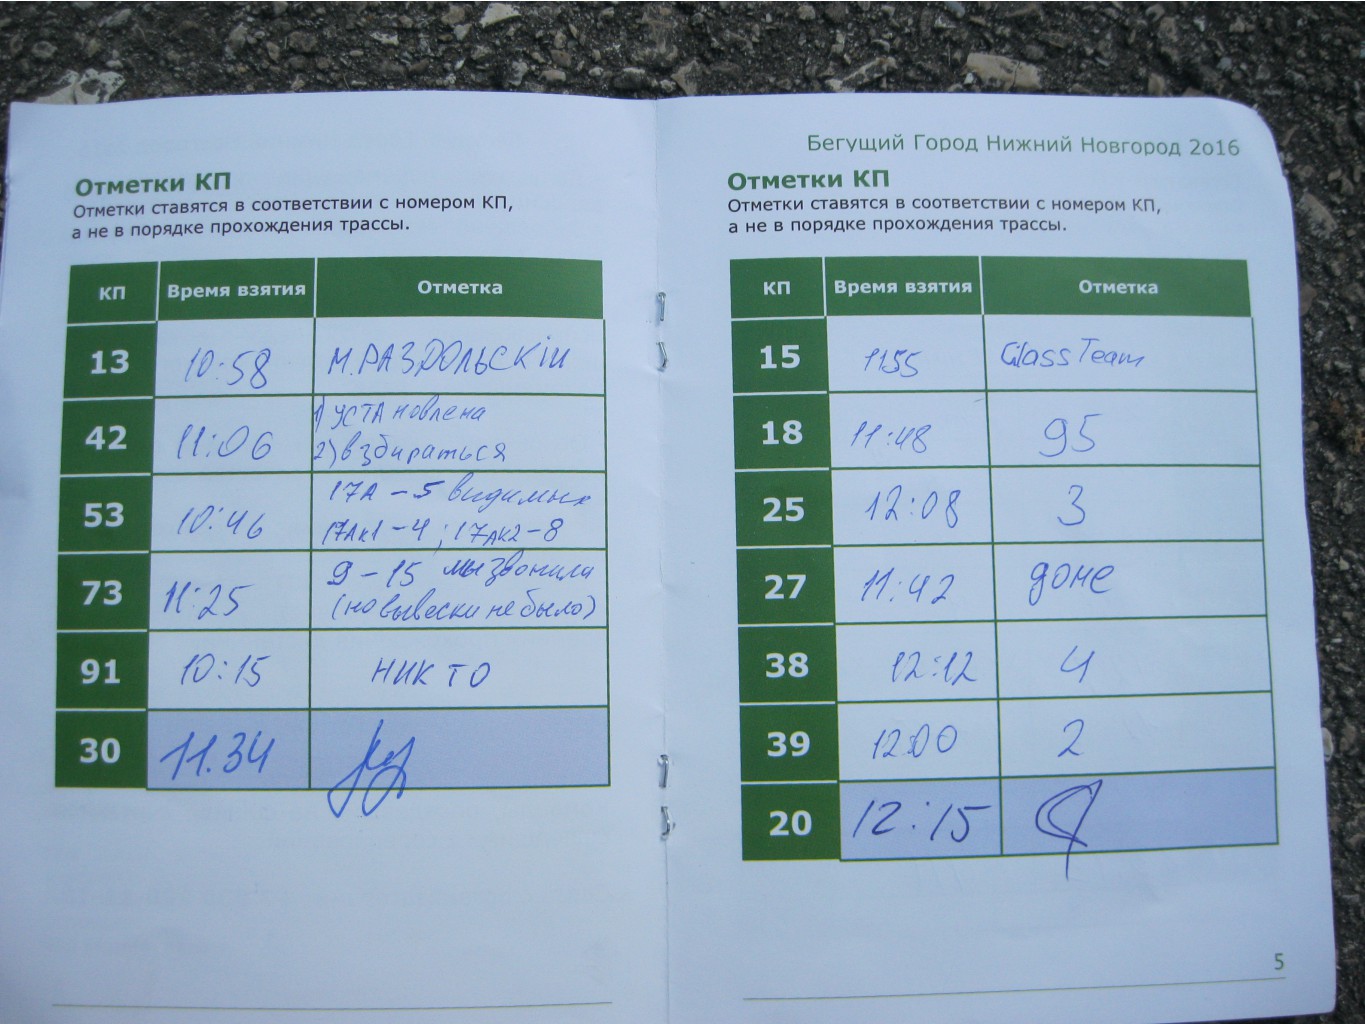 Отметки КП
Отметки ставятся в соответствии с номером КП,
а не в порядке прохождения трассы.
КП Время взятия Отметка
13 10:58 М.РАЗДОЛЬСКIИ
42 11:06 1) УСТАновлена
2) взбираться
53 10:46 17А – 5 видимых
17Ак1 – 4 ; 17Ак2 – 8
73 11:25 9 – 15 мы звонили
(но вывески не было)
91 10:15 НИКТО
30 11.34
Бегущий Город Нижний Новгород 2о16
Отметки КП
Отметки ставятся в соответствии с номером КП,
а не в порядке прохождения трассы.
КП Время взятия Отметка
15 1155 Glass Team
18 11:48 95
25 12:08 3
27 11:42 доне
38 12:12 4
39 12:00 2
20 12:15
5